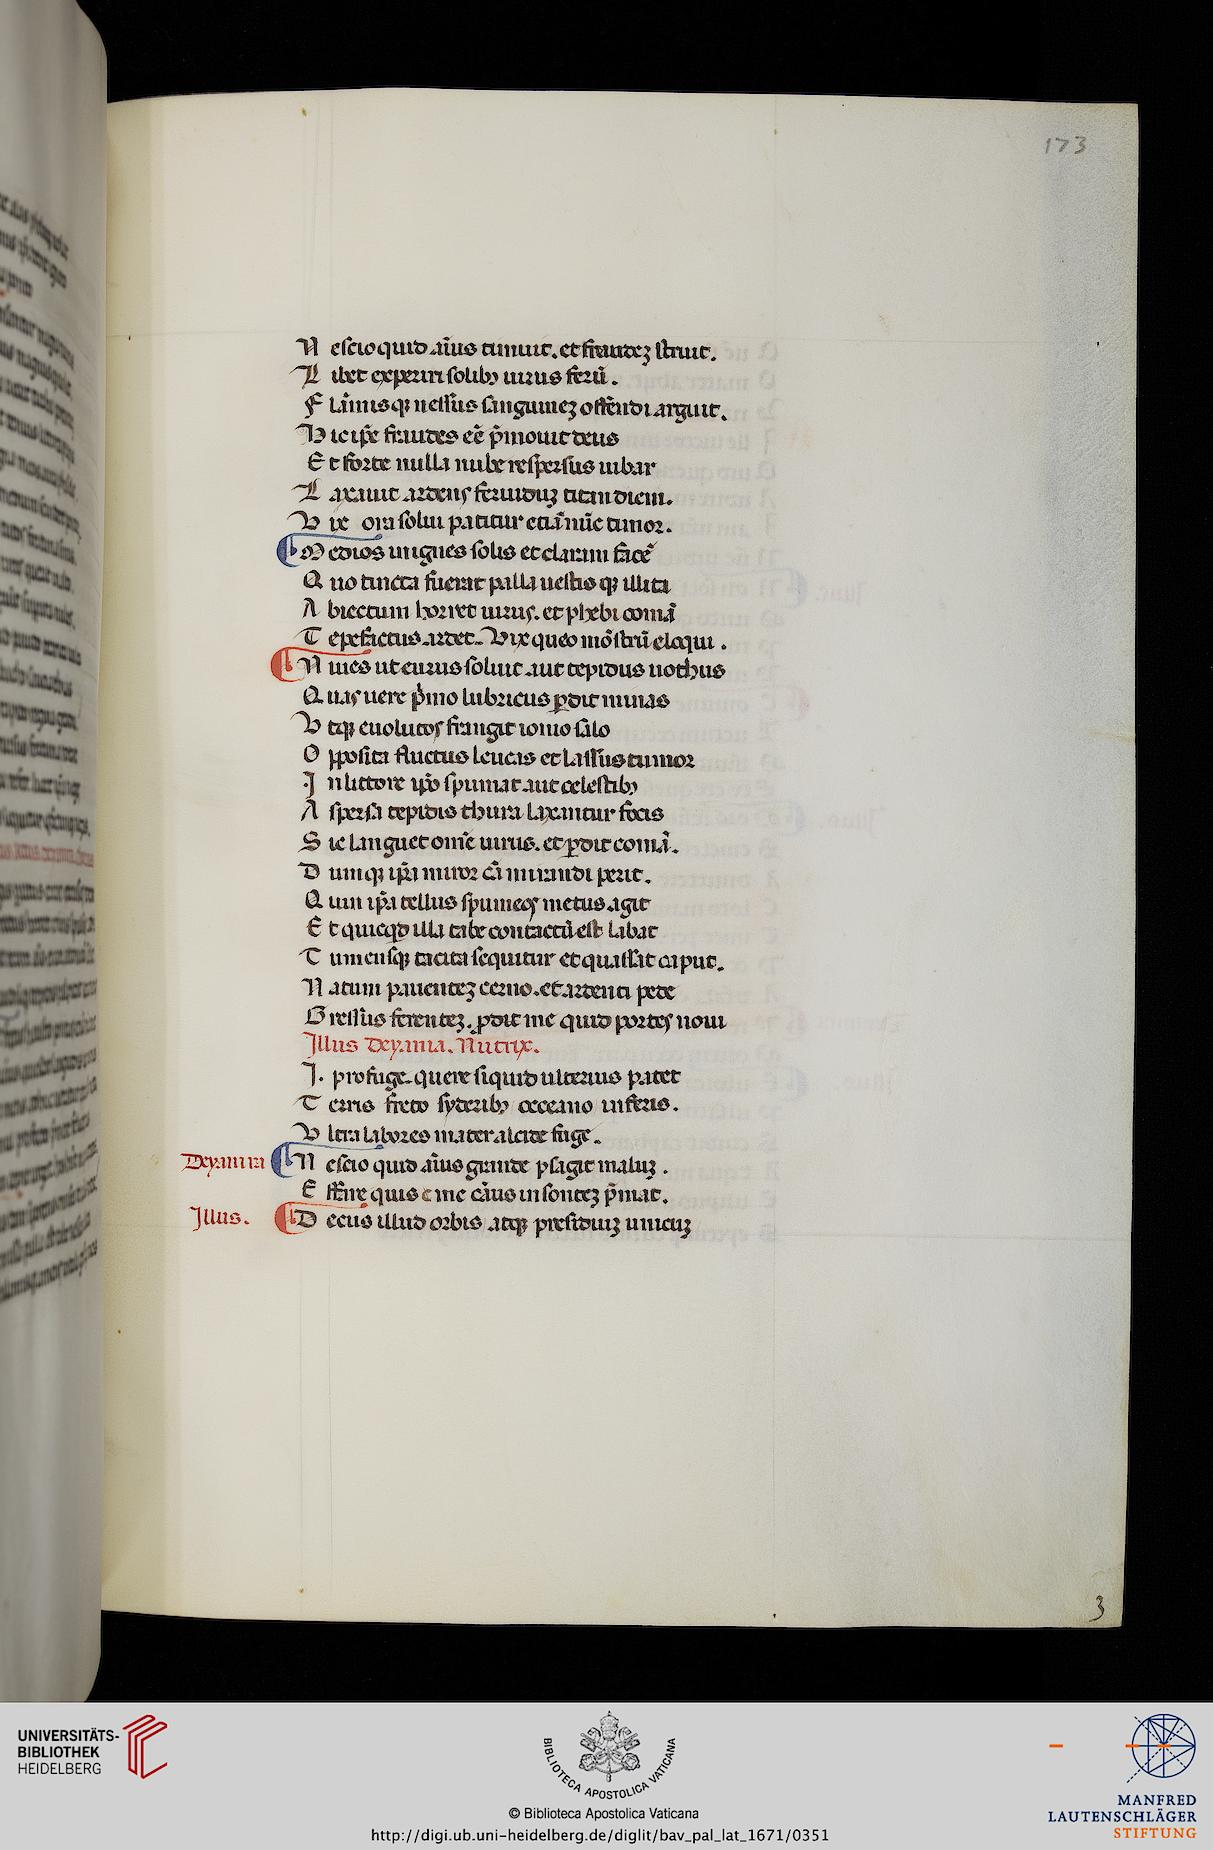 173
N escio quid aīus timuit. et fraudeʒ struit.
L ibet experiri solibꝫ uirus ferū.
F lāmis qꝫ nessus sanguineʒ offendi arguit.
H ic ip̄e fraudes eē p̄mouit deus
E t forte nulla nube respersus iubar
L axauit ardens feruiduʒ titan diem.
V ix ora solui patitur etiā nūc timor.
M edios in ignes solis et claram facē
Q uo tincta fuerat palla uestis qꝫ illita
A biectum horret uirus. et phebi comā
T epefactus ardet. Vix queo mōstrū eloqui.
N iues ut eurus soluit aut tepidus nothus
Q uas uere p̄mo lubricus ꝑdit mimas
V tqꝫ euolutos frangit ionio salo
O pposita fluctus leucas et lassus tumor
I n littore ip̄o spumat aut celestibꝫ
A spersa tepidis thura laxantur focis
S ic languet om̄e uirus. et ꝑdit comā.
D umqꝫ ip̄a miror cā mirandi perit.
Q uin ip̄a tellus spumeos metus agit
E t quicqd illa tabe contactū est labat
T umensqꝫ tacita sequitur et quassat caput.
N atum pauenteʒ cerno. et ardenti pede
G ressus ferenteʒ. ꝓdit me quid portes noui
Illus Deyania. Nutrix.
I. profuge. quere siquid ulterius patet
T erris freto syderibꝫ occeano inferis.
V ltra labores mater alcide fuge.
Deyanira N escio quid aīus grande p̄sagit maluʒ.
E fferre quis e me cāus insonteʒ p̄mat.
Illus. D ecus illud orbis atqꝫ presidiuʒ unicuʒ
3
UNIVERSITÄTS-
BIBLIOTHEK
HEIDELBERG
BIBLIOTECA APOSTOLICA VATICANA
© Biblioteca Apostolica Vaticana
http://digi.ub.uni-heidelberg.de/diglit/bav_pal_lat_1671/0351
MANFRED
LAUTENSCHLÄGER
STIFTUNG